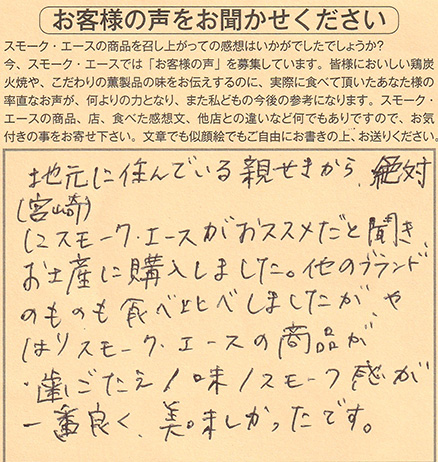 お客様の声をお聞かせください
スモーク・エースの商品を召し上がっての感想はいかがでしたでしょうか?
今、スモーク・エースでは「お客様の声」を募集しています。皆様においしい鶏炭
火焼や、こだわりの薫製品の味をお伝えするのに、実際に食べて頂いたあなた様の
率直なお声が、何よりの力となり、また私どもの今後の参考になります。スモーク・
エースの商品、店、食べた感想文、他店との違いなど何でもありですので、お気
付きの事をお寄せ下さい。文章でも似顔絵でもご自由にお書きの上、お送りください。
地元に住んでいる親せきから、絶対
(宮崎)
にスモーク・エースがおススメだと聞き、
お土産に購入しました。他のブランド
のものも食べ比べしましたが、や
はりスモーク・エースの商品が、
歯ごたえ/味/スモーク感が
一番良く、美味しかったです。